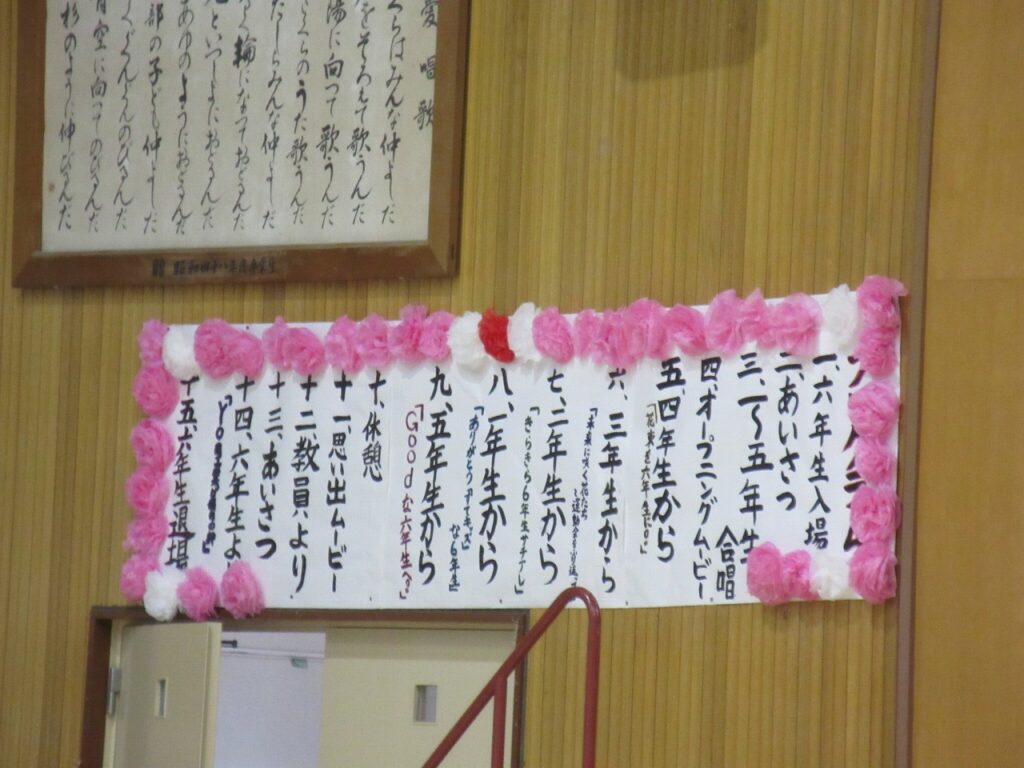 愛唱歌
くらはみんな仲よしだ
をそろえて歌うんだ
陽に向って歌うんだ
くらのうた歌うんだ
たしらみんな仲よしだ
輪になっておどるんだ
といっしょにおどるんだ
あゆのようにおどるんだ
部の子ども仲よしだ
ぐんぐんのびるんだ
青空に向ってのびるんだ
杉のように伸びるんだ
一、六年生入場
二、あいさつ
三、一〜五年生
合唱
四、オープニングムービー
五、四年生から
「花束を六年生に。」
六、三年生から
「未来に咲く花たち
七、二年生から
「きらきら6年生サチアレ」
八、一年生から
「ありがとうすてキッズ
な6年生」
九、五年生から
「Goodな六年生へ。」
十、休憩
十一、思い出ムービー
十二、教員より
十三、あいさつ
十四、六年生より
十五、六年生退場